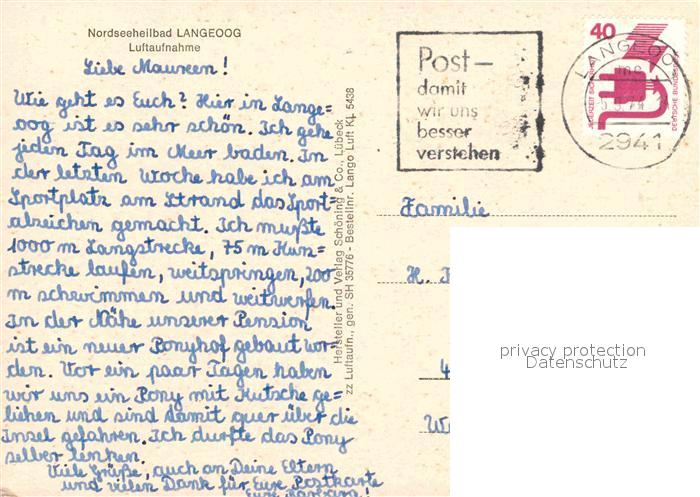 Nordseeheilbad LANGEOOG
Luftaufnahme
Liebe Maureen!
Wie geht es Euch? Hier in Lange=
oog ist es sehr schön. Ich gehe
jeden Tag im Meer baden. In
der letzten Woche habe ich am
Sportplatz am Strand das Sport=
abzeichen gemacht. Ich mußte
1000 m Langstrecke, 75 m Kurz=
strecke laufen, weitspringen, 200
m schwimmen und weitwerfen.
In der Nähe unserer Pension
ist ein neuer Ponyhof gebaut wor=
den. Vor ein paar Tagen haben
wir uns ein Pony mit Kutsche ge=
liehen und sind damit quer über die
Insel gefahren. Ich durfte das Pony
selber lenken.
Viele Grüße, auch an Deine Eltern
und vielen Dank für Eure Postkarte
Eure Barbara!
Hersteller und Verlag Schöning & Co., Lübeck
zz Luftaufn., gen. SH 35776 - Bestellnr. Lango Luft KL 5438
Post-
damit
wir uns
besser
verstehen
40
JEDERZEIT SICHERHEIT
DEUTSCHE BUNDESPOST
LANGEOOG
2941
Familie
H.
4
privacy protection
Datenschutz